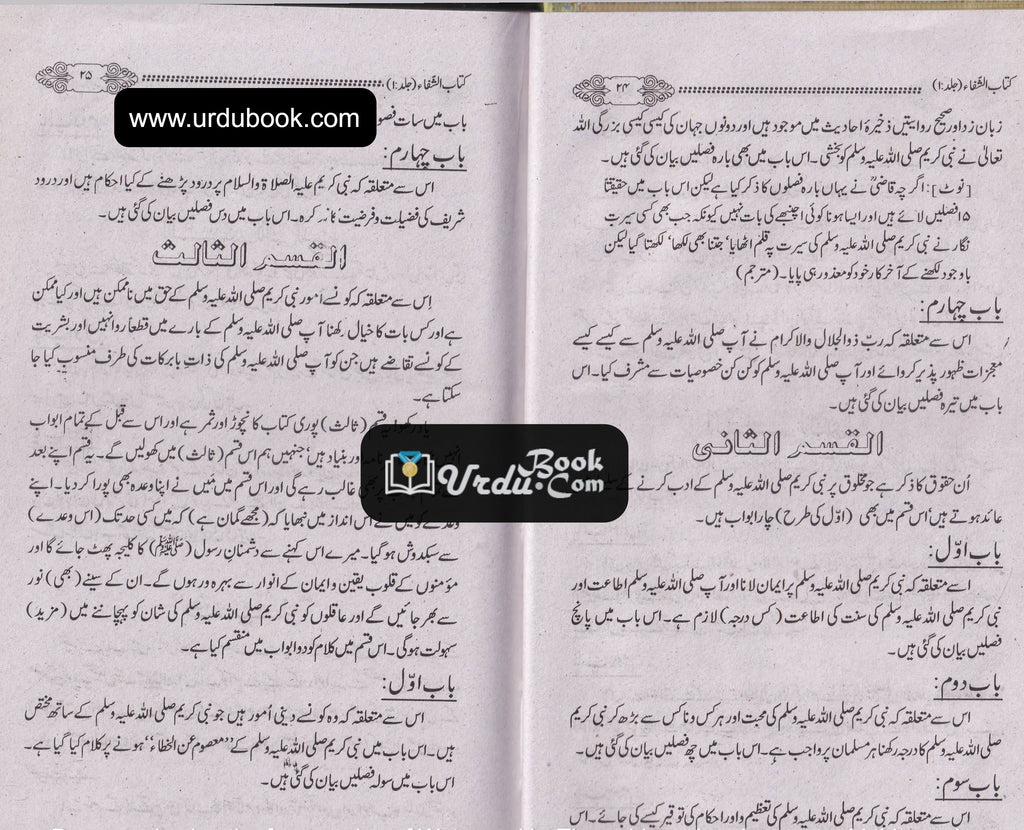 کتاب الشفاء (جلد:۱)
۲۴
زبان زد اور صحیح روایتیں ذخیرۂ احادیث میں موجود ہیں اور دونوں جہان کی کیسی کیسی بزرگی اللہ
تعالیٰ نے نبی کریم صلی اللہ علیہ وسلم کو بخشی۔ اس باب میں بھی بارہ فصلیں بیان کی گئی ہیں۔
[نوٹ]: اگرچہ قاضیؒ نے یہاں بارہ فصلوں کا ذکر کیا ہے لیکن اس باب میں حقیقتاً
۱۵ فصلیں لائے ہیں اور ایسا ہونا کوئی اچنبھے کی بات نہیں کیونکہ جب بھی کسی سیرت
نگار نے نبی کریم صلی اللہ علیہ وسلم کی سیرت پہ قلم اٹھایا، جتنا بھی لکھا، لکھتا گیا لیکن
باوجود لکھنے کے آخر کار خود کو معذور ہی پایا۔ (مترجم)
باب چہارم:
اس سے متعلقہ کہ ربّ ذوالجلال والاکرام نے آپ صلی اللہ علیہ وسلم سے کیسے کیسے
معجزات ظہور پذیر کروائے اور آپ صلی اللہ علیہ وسلم کو کن کن خصوصیات سے مشرف کیا۔ اس
باب میں تیرہ فصلیں بیان کی گئی ہیں۔
القسم الثانی
اُن حقوق کا ذکر ہے جو مخلوق پر نبی کریم صلی اللہ علیہ وسلم کے ادب کرنے کے
عائد ہوتے ہیں، اس قسم میں بھی (اوّل کی طرح) چار ابواب ہیں۔
باب اوّل:
اسے متعلقہ کہ نبی کریم صلی اللہ علیہ وسلم پر ایمان لانا اور آپ صلی اللہ علیہ وسلم اطاعت اور
نبی کریم صلی اللہ علیہ وسلم کی سنت کی اطاعت (کس درجہ) لازم ہے۔ اس باب میں پانچ
فصلیں بیان کی گئی ہیں۔
باب دوم:
اس سے متعلقہ کہ نبی کریم صلی اللہ علیہ وسلم کی محبت اور ہر کس و ناکس سے بڑھ کر نبی کریم
صلی اللہ علیہ وسلم کا درجہ رکھنا ہر مسلمان پر واجب ہے۔ اس باب میں چھ فصلیں بیان کی گئی ہیں۔
باب سوم:
اس سے متعلقہ کہ نبی کریم صلی اللہ علیہ وسلم کی تعظیم و اور احکام کی توقیر کیسے کی جائے۔ اس
کتاب الشفاء (جلد:۱)
۲۵
باب میں سات
www.urdubook.com
باب چہارم:
اس سے متعلقہ کہ نبی کریم علیہ الصلاۃ والسلام پر درود پڑھنے کے کیا احکام ہیں اور درود
شریف کی فضیلت و فرضیت کا تذکرہ۔ اس باب میں دس فصلیں بیان کی گئی ہیں۔
القسم الثالث
اِس سے متعلقہ کہ کونسے اُمور نبی کریم صلی اللہ علیہ وسلم کے حق میں ناممکن ہیں اور کیا ممکن
ہے اور کس بات کا خیال رکھنا آپ صلی اللہ علیہ وسلم کے بارے میں قطعاً روا نہیں اور بشریت
کے کونسے تقاضے ہیں جن کو آپ صلی اللہ علیہ وسلم کی ذاتِ بابرکات کی طرف منسوب کیا جا
سکتا ہے۔
یاد رکھو! یہ قسم (ثالث) پوری کتاب کا نچوڑ اور ثمر ہے اور اس سے قبل کے تمام ابواب
اور بنیاد ہیں، جنہیں ہم اس قسم (ثالث) میں کھولیں گے۔ یہ قسم اپنے بعد
بھی غالب رہے گی اور اس قسم میں مَیں نے اپنا وعدہ بھی پورا کر دیا۔ اپنے
وعدے کو میں نے اس انداز میں نبھایا کہ (مجھے گمان ہے) کہ میں کسی حد تک (اس وعدے)
سے سبکدوش ہو گیا۔ میرے اس کہنے سے دشمنانِ رسول (ﷺ) کا کلیجہ پھٹ جائے گا اور
مؤمنوں کے قلوب یقین و ایمان کے انوار سے بہرہ ور ہوں گے۔ ان کے سینے (بھی) نور
سے بھر جائیں گے اور عاقلوں کو نبی کریم صلی اللہ علیہ وسلم کی شان کو پہچاننے میں (مزید)
سہولت ہوگی۔ اس قسم میں کلام کو دو ابواب میں منقسم کیا ہے۔
باب اوّل:
اس سے متعلقہ کہ وہ کونسے دینی اُمور ہیں جو نبی کریم صلی اللہ علیہ وسلم کے ساتھ مختص
ہیں۔ اس باب میں نبی کریم صلی اللہ علیہ وسلم کے ”معصوم عن الخطاء“ ہونے پر کلام کیا گیا ہے۔
اس باب میں سولہ فصلیں بیان کی گئی ہیں۔
Urdu Book.Com